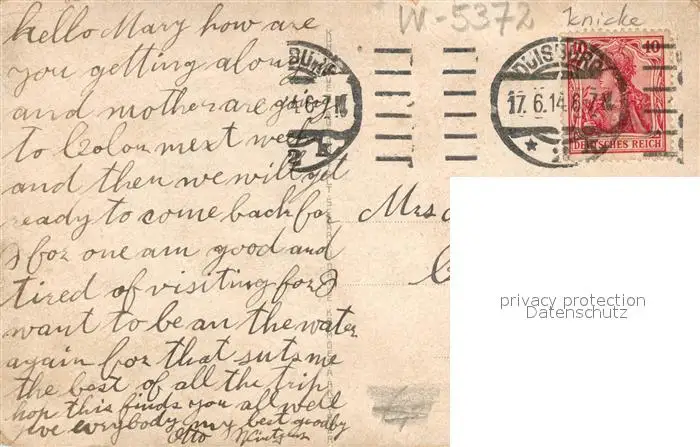 W-5372 knicke
hello Mary how are
you getting along
and mother are going
to Colon next week
and then we will get
ready to come back for
I for one am good and
tired of visiting for I
want to be an the water
again for that suts me
the best of all the trip
hop this finds you all well
give everybody my best goodby
Otto
DUISBURG
17.6.14.6-7.N
10 10
DEUTSCHES REICH
Mrs
privacy protection
Datenschutz